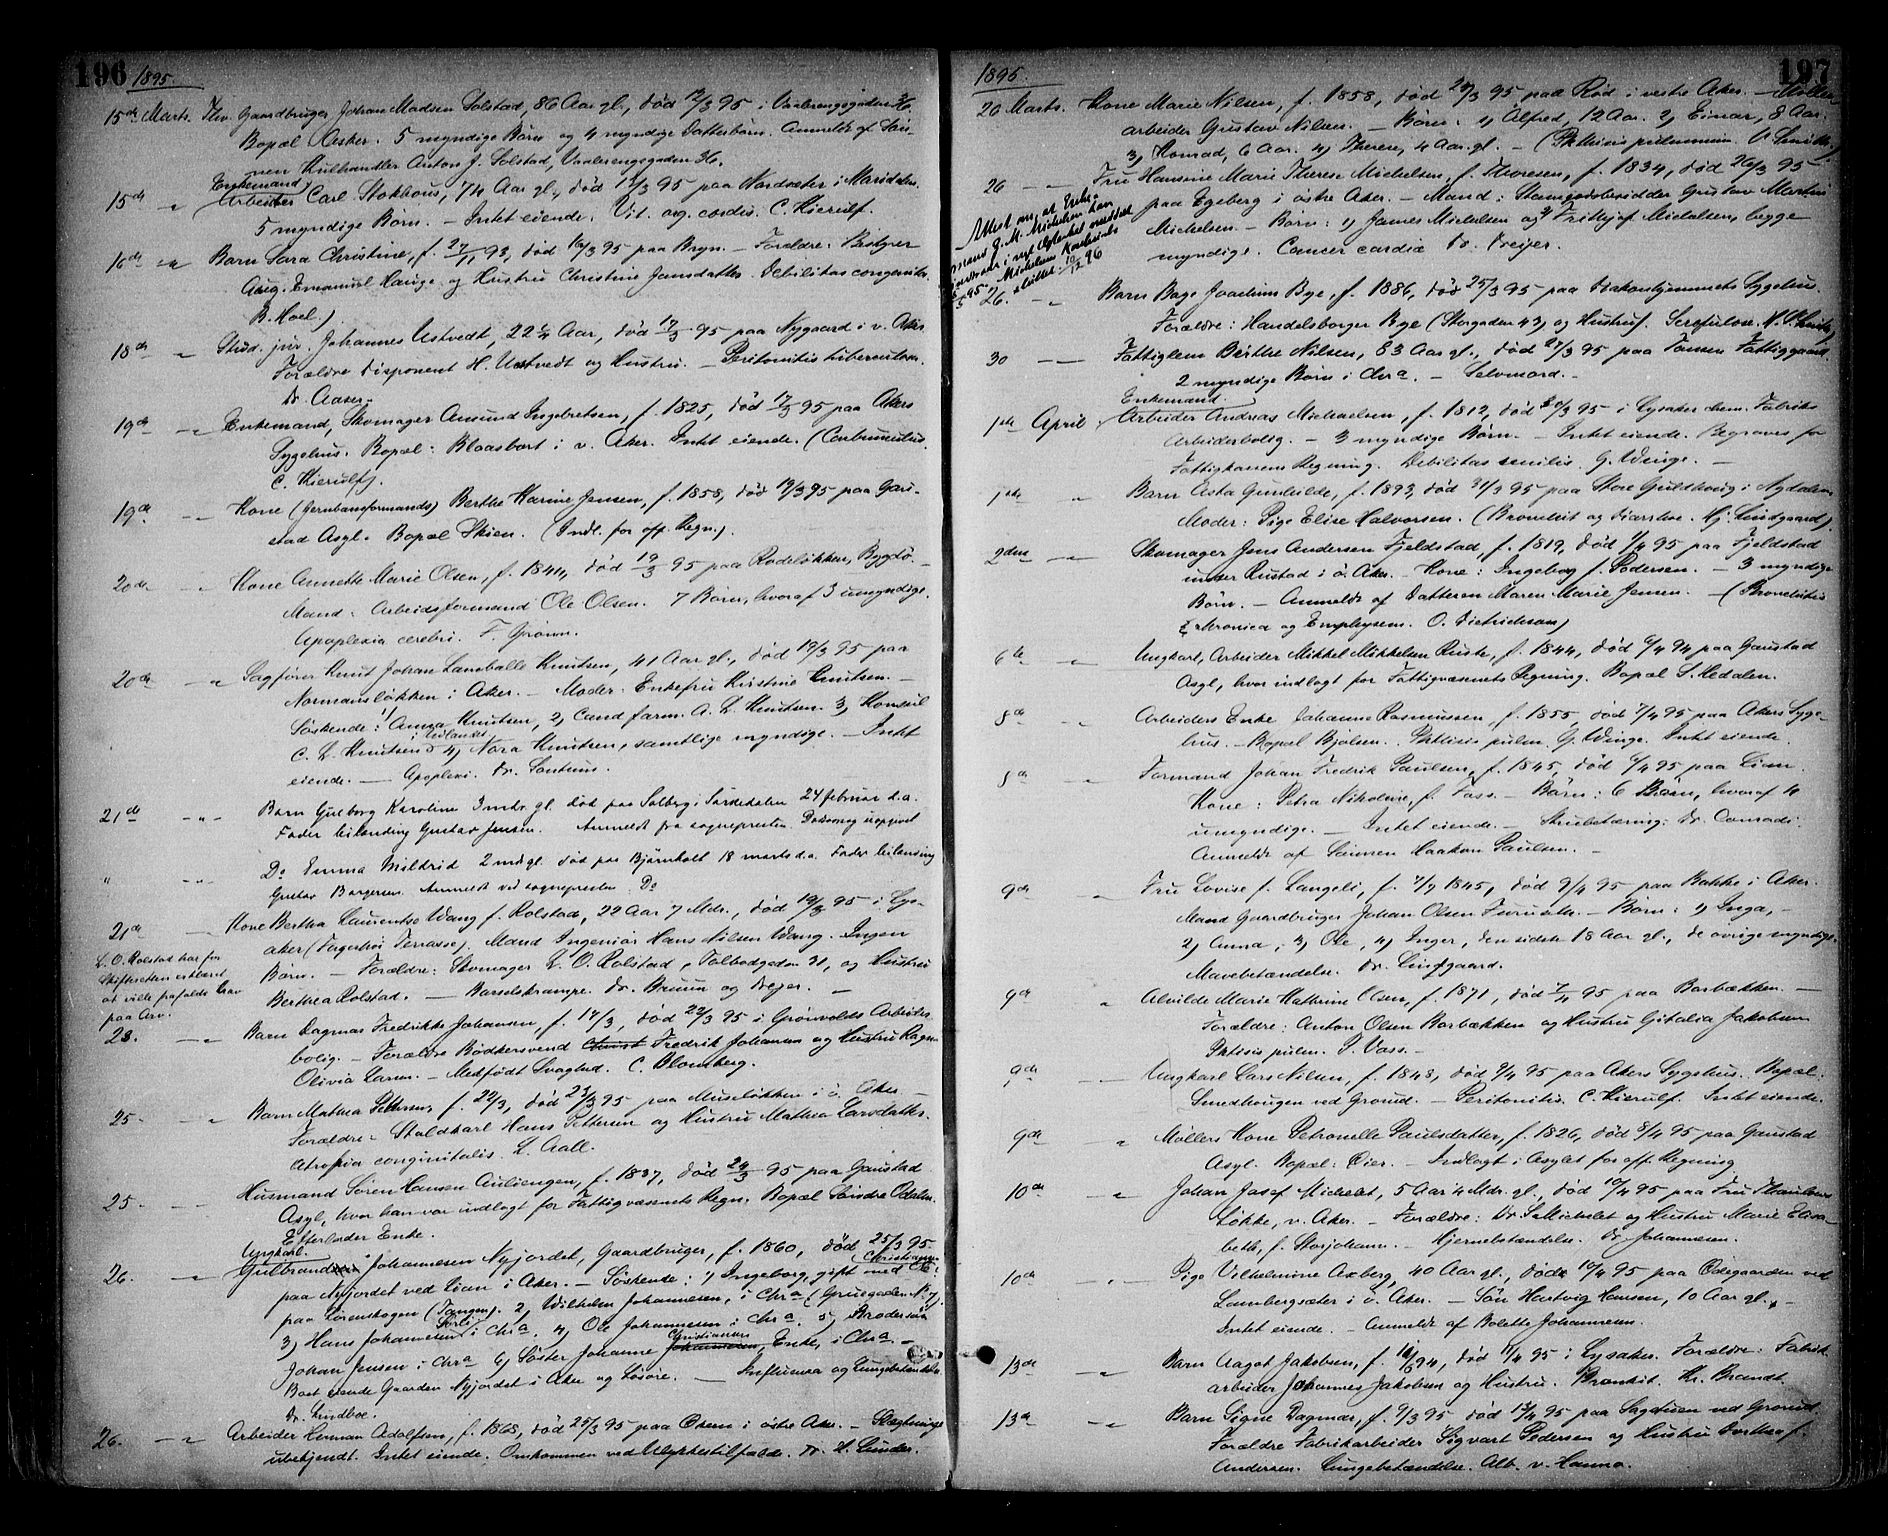 196 1895.
15de Marts. Fhv. Gaardbruger Johan Madsen Solstad, 86 Aar gl., død 12/3 95 i Vaalerengsgaden 36
Bopæl Asker. 5 myndige Børn og 4 myndige Datterbørn. Anmeldt af Søn-
nen Kulhandler Anton J. Solstad, Vaalerengsgaden 36.
Enkemand
15de " Arbeider Carl Stokhous, 74 Aar gl., død 13/3 95 paa Nordsæter i Maridalen.
5 myndige Børn. – Intet eiende. Vit. org. cordis. C. Kierulf.
16de " Barn Sara Christine, f. 27/11 93, død 16/3 95 paa Bryn. – Forældre: Bestyrer
Aug. Emanuel Hauge og Hustru Christine Jansdatter. Debilitas congenita.
B. Hoel.)
18de " Stud. jur. Johannes Ustvedt, 22 1/4 Aar, død 17/3 95 paa Nygaard i v. Aker
Forældre Disponent H. Ustvedt og Hustru. – Peritonitis tuberculosa.
Dr. Aaser.
19de " Enkemand, Skomager Amund Ingebretsen, f. 1825, død 17/3 95 paa Akers
Sygehus. Bopæl: Blaasbort i v. Aker. Intet eiende. (Carbunculus.
C. Kierulf).
19de " Kone (Jernbaneformands) Berthe Karine Jensen, f. 1858, død 19/3 95 paa Gau-
stad Asyl. Bopæl Skien. (Indl. for off. Regn.)
20de " Kone Annette Marie Olsen, f. 1841, død 19/3 95 paa Rodeløkken, Bygdø. –
Mand: Arbeidsformand Ole Olsen. 7 Børn, hvoraf 3 umyndige.
Apoplexia cerebri. F. Grønn.
20de " Sagfører Knut Johan Lamballe Knutsen, 41 Aar gl., død 19/3 95 paa
Normansløkken i Aker. – Moder: Enkefru Kirstine Knutsen. –
Søskende: 1) Anna Knutsen, 2) Cand farm. A. L. Knutsen. 3) Konsul
C. L. Knutsen i Udlandet 4) Nora Knutsen, samtlige myndige. – Intet
eiende. – Apoplexi. Dr. Sontum.
21de " Barn Gueborg Karoline 3 mdr gl. død paa Solberg i Sørkedalen 24 februar d.a.
Fader leilænding Gustav Jensen. Anmeldt fra sognepresten. Dødsaarsag uopgivet
" " Do Emma Mildrid 2 md gl. død paa Bjørnholt 18 marts d.a. Fader leilænding
Gustav Borgersen. Anmeldt ved sognepresten Do
21de " Kone Bertha Laurentse Wang f. Rolstad, 22 Aar 7 Mdr., død 19/3 95 i Lys-
aker (Fagerhøi Terrasse). Mand Ingeniør Hans Nilsen Wang. Ingen
Børn. – Forældre: Skomager L. O. Rolstad, Tolbodgaden 31, og Hustru
Berthea Rolstad. – Barselskrampe. Dr. Bruun og Dreyer. –
L. O. Rolstad har for
Skifteretten erklæret
at ville frafalde Krav
paa Arv.
23. " Barn Dagmar Fredrikke Johansen, f. 14/3, død 22/3 95 i Grønvolds Arbeider-
bolig. – Forældre Bødkersvend Fredrik Johansen og Hustru Ragna
Olivia Larsen. – Medfødt Svaghed. C. Blomberg.
25. " Barn Mathea Pettersen, f. 22/3, død 23/3 95 paa Museløkken i ø. Aker –
Forældre: Staldkarl Hans Pettersen og Hustru Mathea Larsdatter.
Atrophia conginitalis. L. Aall.
25. " Husmand Søren Hansen Auliengen, f. 1837, død 24/3 95 paa Gaustad
Asyl, hvor han var indlagt for Fattigvæsenets Regn. Bopæl Søndre Odalen.
Efterlader Enke.
Ungkarl.
26. " Gulbrand Johannesen Nyjordet, Gaardbruger, f. 1860, død 25/3 95
paa Nyjordet ved Lian i Aker. – Søskende: 1) Ingeborg, gift med Christiansen
paa Lørenskogen (Tangen). 2) Wilhelm Johannesen, i Chra (Gruegaden No 7).
3) Hans Johannesen i Chra. 4) Ole Johannesen i Chra. 5) Brodersøn
Johan Jensen i Chra 6) Søster Johanne Johannesen Christiansen, Enke, i Chra –
Boet eiende Gaarden Nyjordet i Aker og Løsøre. – Influensa og Lungebetændelse
Dr. Lindboe.
26. " Arbeider Herman Adolfsen, f. 1868, død 25/3 95 paa Økern i østre Aker. – Slægtninge
ubekjendt. Intet eiende. Omkommen ved Ulykkestilfælde. Dr. H. Sunder.
1895. 197
26 Marts. Kone Marie Nilsen, f. 1858, død 24/3 95 paa Rød i vestre Aker. – Mølle-
arbeider Gustav Nilsen. – Børn: 1) Alfred, 12 Aar. 2) Einar, 8 Aar.
3) Konrad, 6 Aar. 4) Therese, 4 Aar gl. – (Phthisis pulmonum.
26 " Fru Hansine Marie Therese Michelsen, f. Thoresen, f. 1834, død 26/3 95
paa Egeberg i østre Aker. – Mand: Gustav Martin
Michelsen. – Børn: 1) James Michelsen og 2) Frithjof Michelsen, begge
myndige. Cancer cardiæ Dr. Dreijer.
Attest om, at Enke-
mand G. M. Michelsen kan
hensidde i uskiftet Bo
meddelt 10/12 96
26. " Barn Bage Joachim Bye, f. 1886, død 25/3 95 paa Diakonhjemmets Sygehus.
Forældre: Handelsborger Bye (Storgaden 43) og Hustru. Scrofulose.
30 " Fattiglem Berthe Nilsen, 83 Aar gl., død 27/3 95 paa Tonsen Fattiggaard.
2 myndige Børn i Chra. – Selvmord. –
Enkemand.
1ste April. Arbeider Andreas Michaelsen, f. 1812, død 30/3 95 i Lysaker chem. Fabriks
Arbeiderbolig. – 3 myndige Børn. – Intet eiende. Begraves for
Fattigkassens Regning. Debilitas senilis. G. Winge. –
1ste " Barn Asta Gunhilde, f. 1893, død 31/3 95 paa Store Guldhaug i Nydalen.
Moder: Pige Elise Halvorsen. (Bronchit og Diarrhoe. Hj. Lindgaard).
2den " Skomager Jens Andersen Fjeldstad, f. 1819, død 1/4 95 paa Fjeldstad
under Rustad i ø. Aker. – Kone: Ingeborg f. Pedersen. – 3 myndige
Børn. – Anmeldt af Datteren Maren Marie Jensen. – (Bronchitis
chronica og Emphysem. O. Dietrichson)
6te " Ungkarl, Arbeider Mikkel Mikkelsen Ruste, f. 1844, død 4/4 94 paa Gaustad
Asyl, hvor indlagt for Fattigvæsenets Regning. Bopæl S. Hedalen.
8de " Arbeiders Enke Johanne Rasmussen, f. 1855, død 7/4 95 paa Akers Syge-
hus. – Bopæl Bjølsen. Phthisis pulm. G. Winge. Intet eiende.
8de " Formand Johan Fredrik Paulsen, f. 1845, død 6/4 95 paa Lian.
Kone: Petra Nikoline, f. Foss. – Børn: 6 Børn, hvoraf 4
umyndige. – Intet eiende. – Strubetæring: Dr. Conradi.
Anmeldt af Sønnen Haakon Paulsen. –
9de " Fru Lovise f. Langeli, f. 7/7 1845, død 9/4 95 paa Bakke i Aker.
Mand Gaardbruger Johan Olsen Furuseth. – Børn: 1) Inga, –
2) Anna, 3) Ole, 4) Inger, den sidste 18 Aar gl., de øvrige myndige.
Mavebetændelse. Dr. Lindgaard.
9de " Alvilde Marie Kathrine Olsen, f. 1871, død 7/4 95 paa Barbækken. –
Forældre: Anton Olsen Barbækken og Hustru Gitalia Jakobsen
Phtisis pulm. J. Voss. –
9de " Ungkarl Lars Nilsen, f. 1848, død 9/4 95 paa Akers Sygehus. Bopæl:
Smedhougen ved Grorud. – Peritonitis. C. Kierulf. Intet eiende.
9de " Møllers Kone Petronelle Paulsdatter, f. 1826, død 8/4 95 paa Gaustad
Asyl. Bopæl: Øier. – Indlagt i Asylet for off. Regning
10de " Johan Josef Michelet, 5 Aar 4 Mdr. gl., død 10/4 95 paa Fru Thaulows
Løkke, v. Aker. – Forældre: Dr S. Michelet og Hustru Marie Elisa-
beth, f. Storjohann. – Hjernebetændelse. Dr. Johannessen.
10de " Pige Vilhelmine Axberg, 40 Aar gl., død 10/4 95 paa Ødegaarden ved
Lambergsæter i ø. Aker. – Søn Hartvig Hansen, 10 Aar gl., –
Intet eiende. – Anmeldt af Bolette Johannesen.
13de " Barn Aagot Jakobsen, f. 94, død 11/4 95 i Lysaker. Forældre: Fabrik-
arbeider Johannes Jakobsen og Hustru. Bronkit. Kr. Brandt.
13de " Barn Signe Dagmar, f. 9/3 95 død 12/4 95 paa Sagstuen ved Grorud.
Forældre Fabrikarbeider Sigvart Pedersen og Hustru Dorthea f.
Andersen. Lungebetændelse. Alb. v. Hanno.